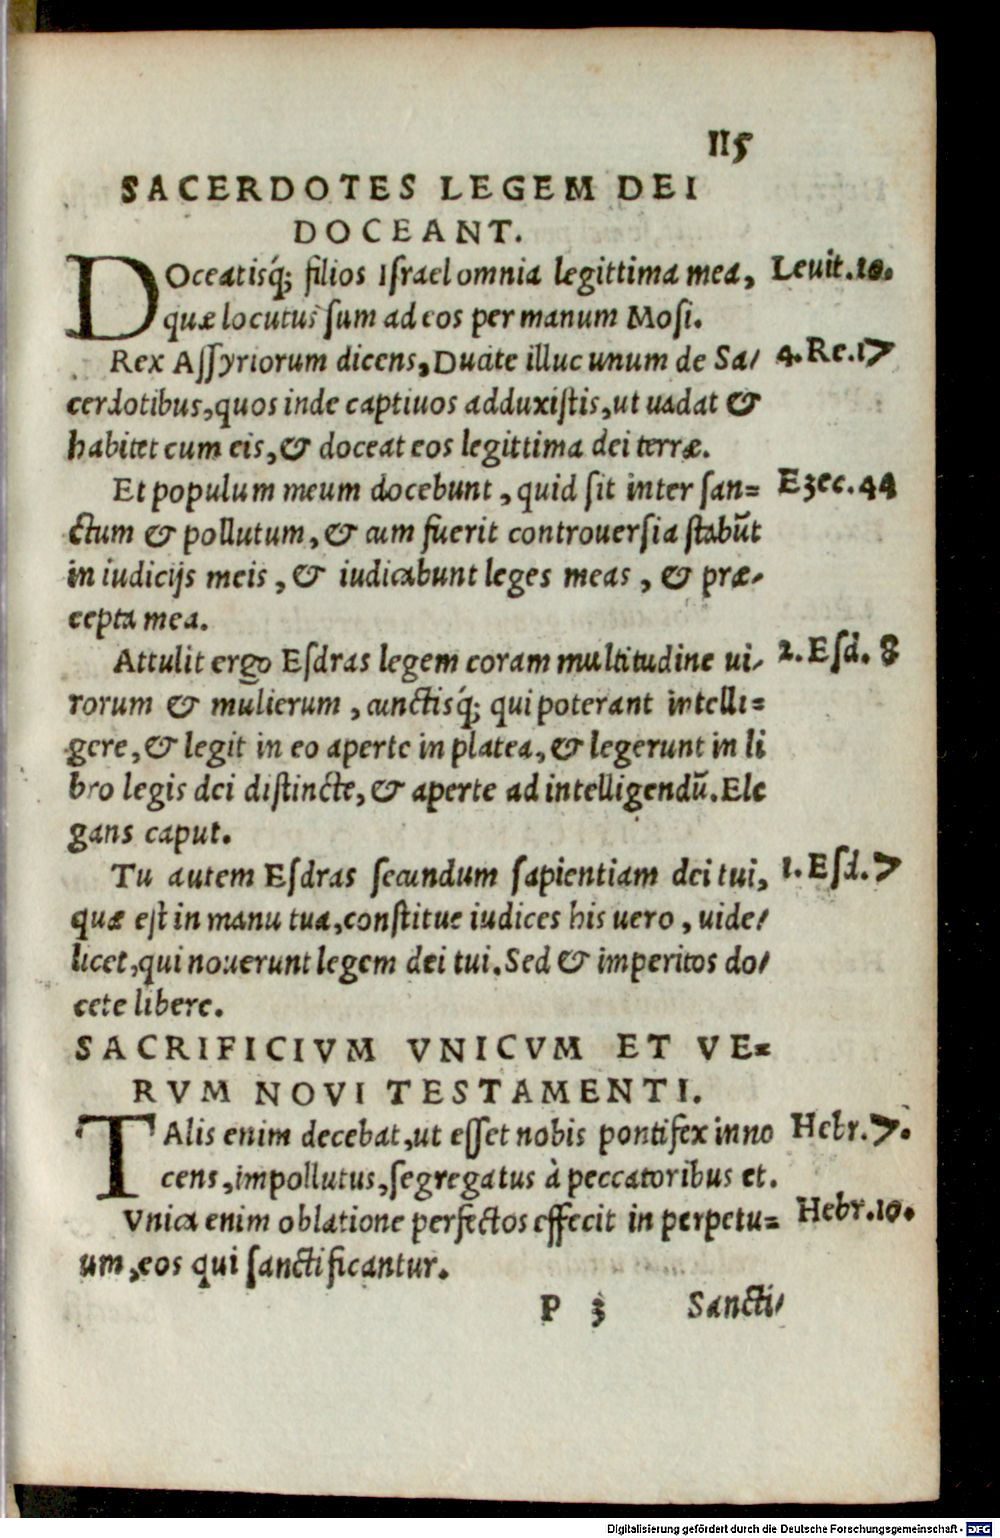 115
SACERDOTES LEGEM DEI
DOCEANT.
DOceatisq́; filios Iſrael omnia legittima mea, Leuit.10.
quæ locutus ſum ad eos per manum Moſi.
Rex Aſſyriorum dicens, Ducite illuc unum de Sa/ 4.Re.17
cerdotibus, quos inde captiuos adduxiſtis, ut uadat &
habitet cum eis, & doceat eos legittima dei terræ.
Et populum meum docebunt, quid ſit inter ſan= Ezec.44
ctum & pollutum, & cum fuerit controuerſia ſtabūt
in iudicijs meis, & iudicabunt leges meas, & præ/
cepta mea.
Attulit ergo Eſdras legem coram multitudine ui/ 2.Eſd. 8
rorum & mulierum, cunctisq́; qui poterant intelli=
gere, & legit in eo aperte in platea, & legerunt in li
bro legis dei diſtincte, & aperte ad intelligendū. Ele
gans caput.
Tu autem Eſdras ſecundum ſapientiam dei tui, 1.Eſd.7
quæ eſt in manu tua, conſtitue iudices his uero, uide/
licet, qui nouerunt legem dei tui. Sed & imperitos do/
cete libere.
SACRIFICIVM VNICVM ET VE=
RVM NOVI TESTAMENTI.
TAlis enim decebat, ut eſſet nobis pontifex inno Hebr.7.
cens, impollutus, ſegregatus à peccatoribus et.
Vnica enim oblatione perfectos effecit in perpetu= Hebr.10.
um, eos qui ſanctificantur.
P 3 Sancti/
Digitalisierung gefördert durch die Deutsche Forschungsgemeinschaft - DFG